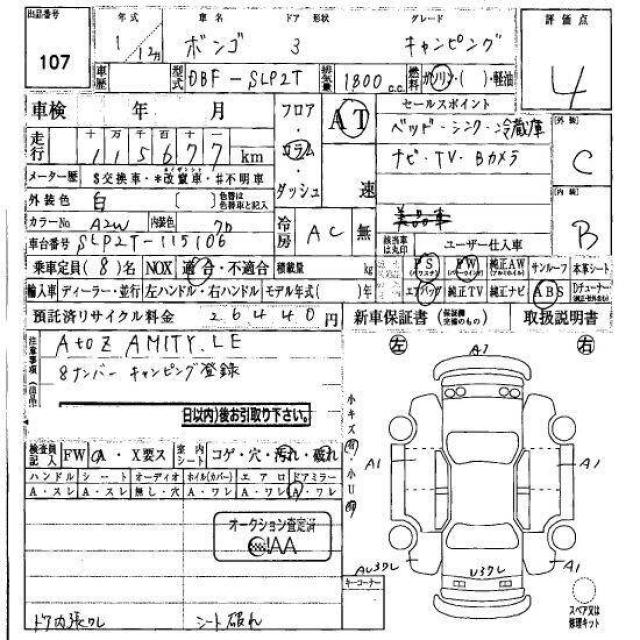 出品番号
107
年式 車名 ドア 形状 グレード
1/12月 ボンゴ 3 キャンピング
車歴
型式 DBF-SLP2T 排気量 1800c.c. 燃料 ガソリン・( )・軽油
評価点
4
車検 年 月
フロア・コラム・ダッシュ
AT
速
セールスポイント
ベッド・シンク・冷蔵庫
ナビ・TV・Bカメラ
美品車
外装
C
内装
B
走行 十 万 千 百 十 一
115677 km
メーター歴 $交換車・*改竄車・#不明車
外装色 白 ( ) 色替は色替車と記入
カラーNo A2W 内装色 クロ
冷房 AC 無
車台番号 SLP2T-115106
該当車は丸印
ユーザー仕入車
乗車定員(8)名 NOX 適合・不適合 積載量 kg
PS PW 純正AW サンルーフ 本革シート
輸入車 ディーラー・並行 左ハンドル・右ハンドル モデル年式( )年
エアバッグ 純正TV 純正ナビ ABS Dチューナー
預託済リサイクル料金 26440円
新車保証書 (保証欄完備のもの) 取扱説明書
注意事項
AtoZ AMITY.LE
8ナンバー キャンピング登録
日以内)後お引取り下さい。
左 右
A1
小キズ有・小U有
検査員記入 FW A・X要ス 室内シート コゲ・穴・汚れ・破れ
ハンドル シート オーディオ ホイル(カバー) エアロ ドアミラー
A・スレ A・スレ 無し・穴 A・ワレ A・ワレ A・ワレ
A1 A1
オークション査定済
AA
AU3ワレ U3ワレ A1
キーコーナー
スペア又は修理キット
ドア内張ワレ シート破れ